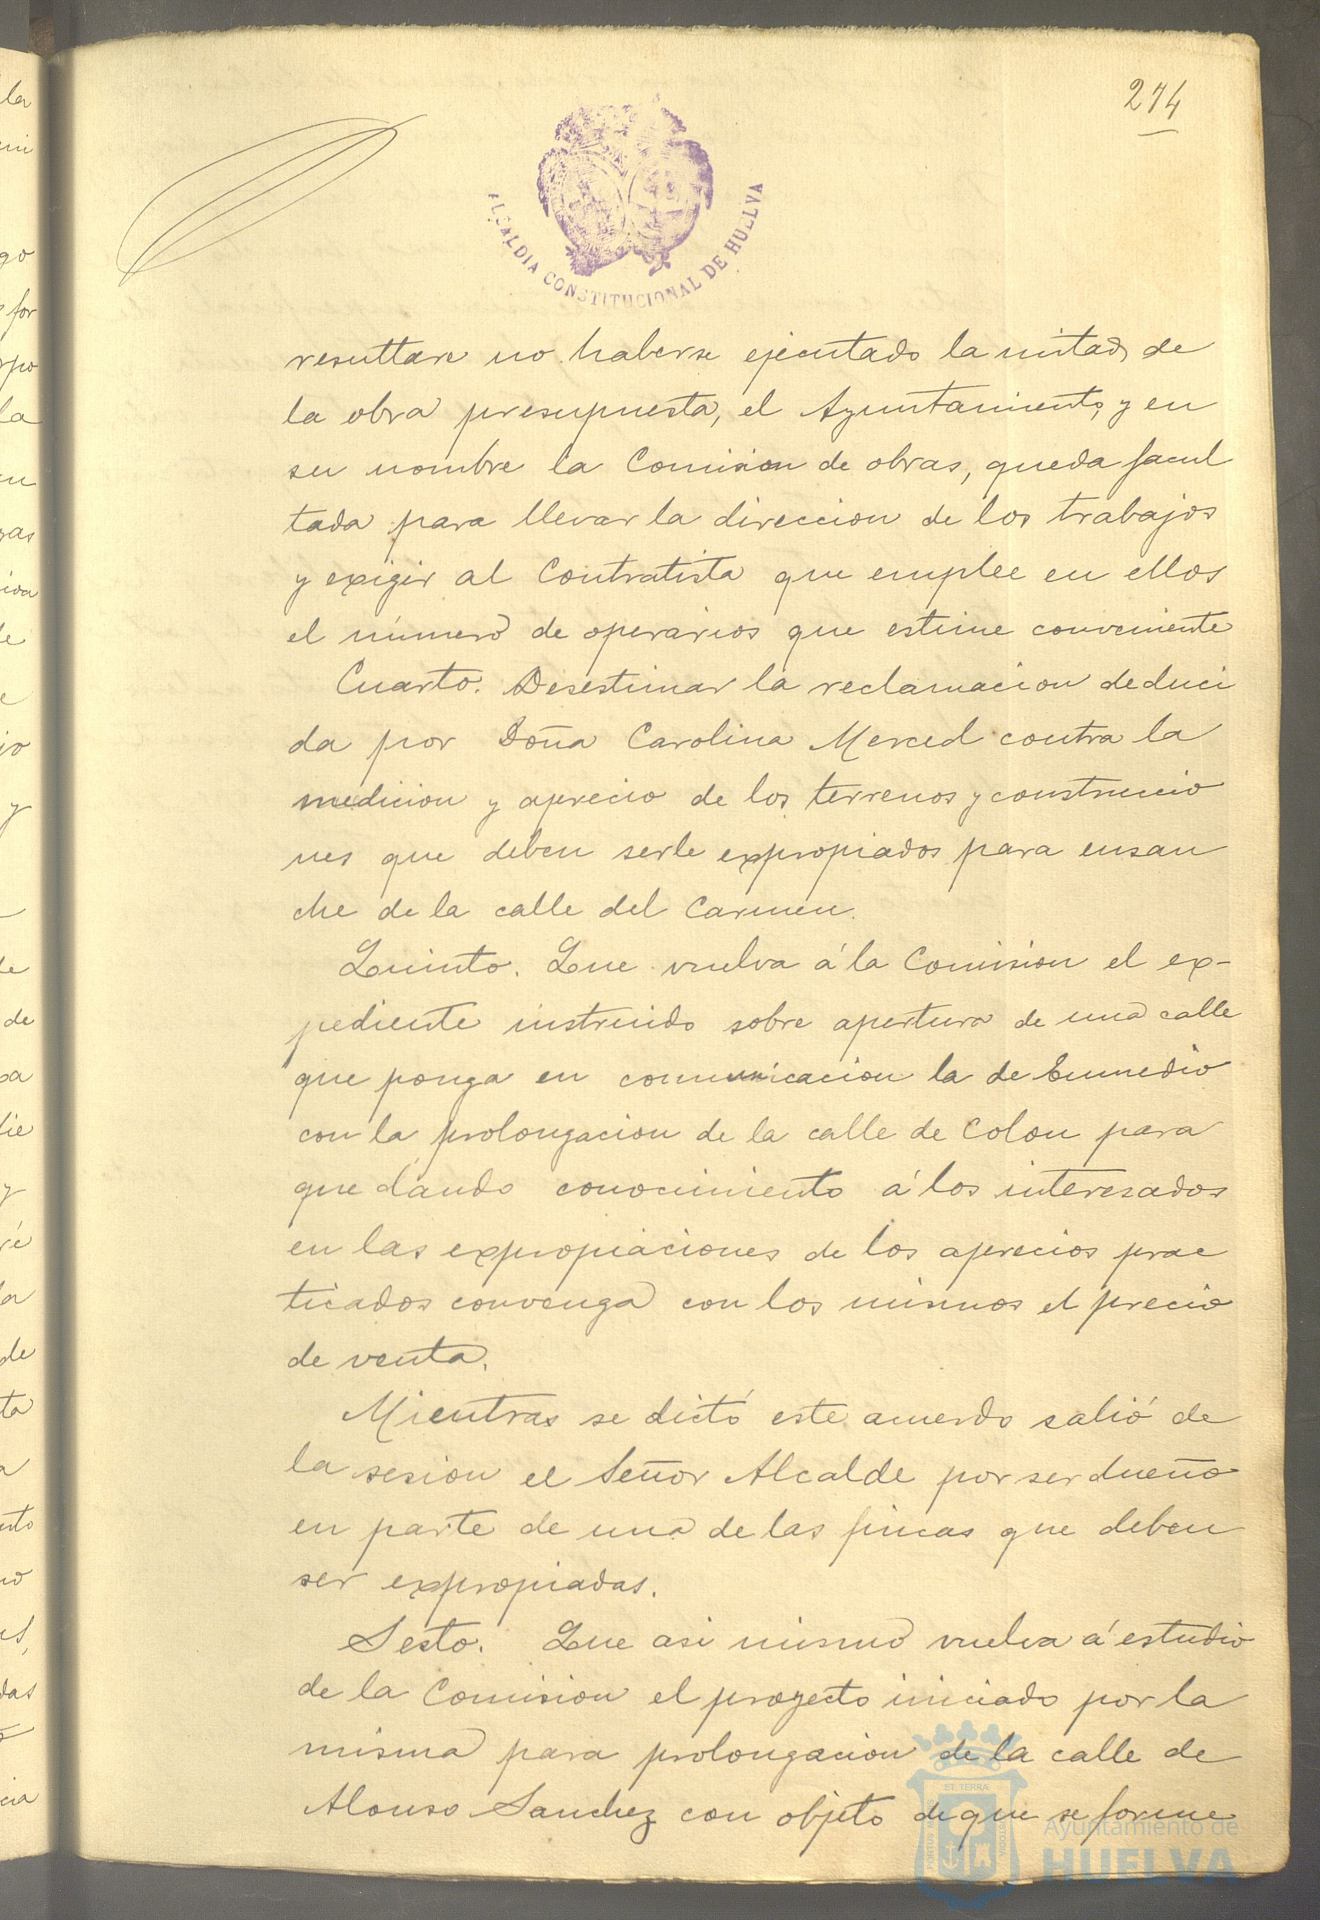 274
ALCALDIA CONSTITUCIONAL DE HUELVA
resultare no haberse ejecutado la mitad de
la obra presupuesta, el Ayuntamiento, y en
su nombre la Comision de obras, queda facul
tada para llevar la direccion de los trabajos
y exigir al Contratista que emplee en ellos
el número de operarios que estime conveniente
Cuarto. Desestimar la reclamacion deduci
da por Doña Carolina Merced contra la
medicion y aprecio de los terrenos y construccio
nes que deben serle expropiados para ensan
che de la calle del Carmen.
Quinto. Que vuelva á la Comision el ex-
pediente instruido sobre apertura de una calle
que ponga en comunicacion la de Enmedio
con la prolongacion de la calle de Colon para
que dando conocimiento á los interesados
en las expropiaciones de los aprecios prac
ticados convenga con los mismos el precio
de venta.
Mientras se dictó este acuerdo salió de
la sesion el Señor Alcalde por ser dueño
en parte de una de las fincas que deben
ser expropiadas.
Sesto. Que asi mismo vuelva á estudio
de la Comision el proyecto iniciado por la
misma para prolongacion de la calle de
Alonso Sanchez con objeto de que se forme
ET TERRA
Ayuntamiento de
HUELVA